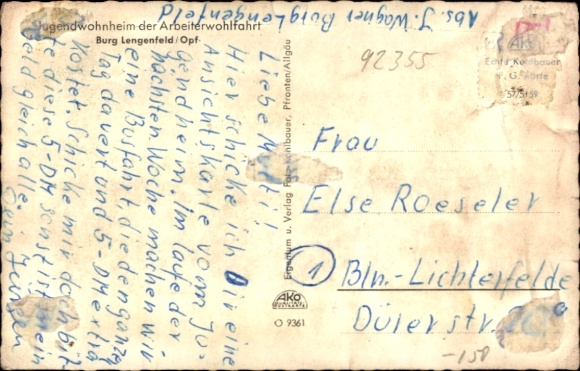 Jugendwohnheim der Arbeiterwohlfahrt
Burg Lengenfeld/Opf.
Abs. J. Wagner Burglengenfeld
Liebe Mutti!
Hier schicke ich Dir eine
Ansichtskarte vom Ju-
gendheim. Im laufe der
nächsten Woche machen wir
eine Busfahrt, die den ganzen
Tag dauert und 5-DM
Kostet. Schicke mir doch bit-
te diese 5-DM sonst ist mein
Geld gleich alle.
Dein Jürgen
Eigentum u. Verlag Foto Kohlbauer, Pfronten/Allgäu
AKO
O 9361
92355
AKO
Echt Kohlbauer
57/5159
Frau
Else Roeseler
1 Bln.-Lichterfelde
Dürerstr.
-150